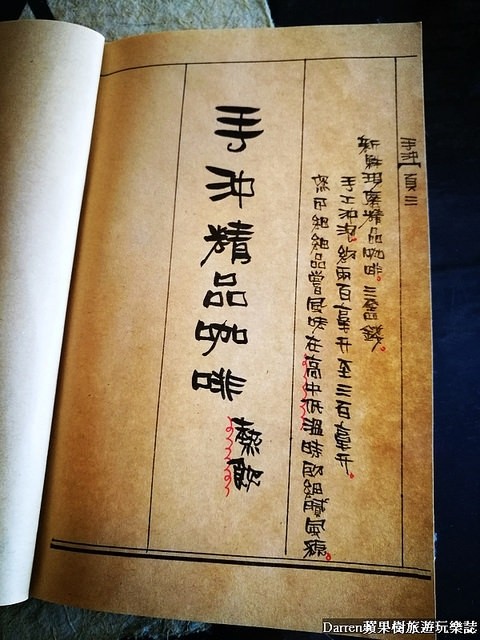 手沖 頁三
新鮮現磨精品咖啡。三
手工沖泡。約兩百毫升至三百毫升。
細細品嘗風味在高中低溫時的細膩風
手沖精品咖啡 熱飲
Darren蘋果樹旅遊玩樂誌